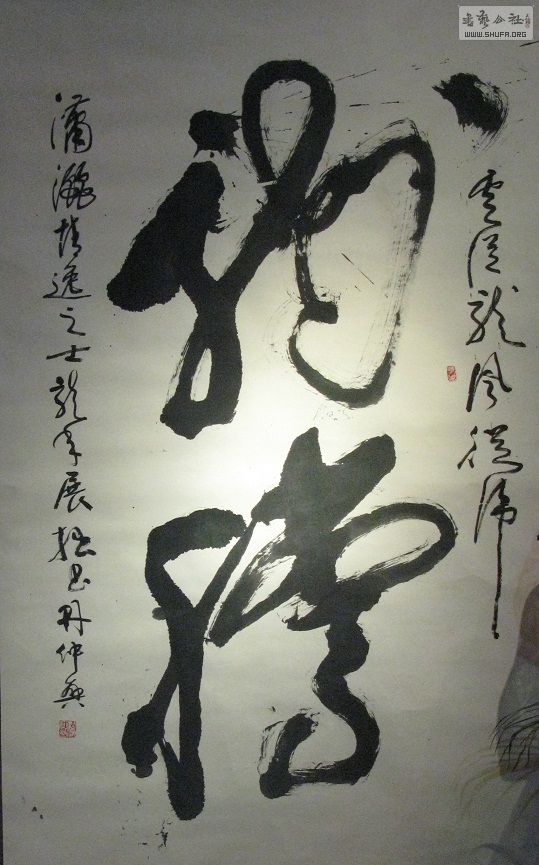 書藝公社
WWW.SHUFA.ORG
雲從龍風從虎
龍
瀟灑情逸之士龍年展拙書丹仲